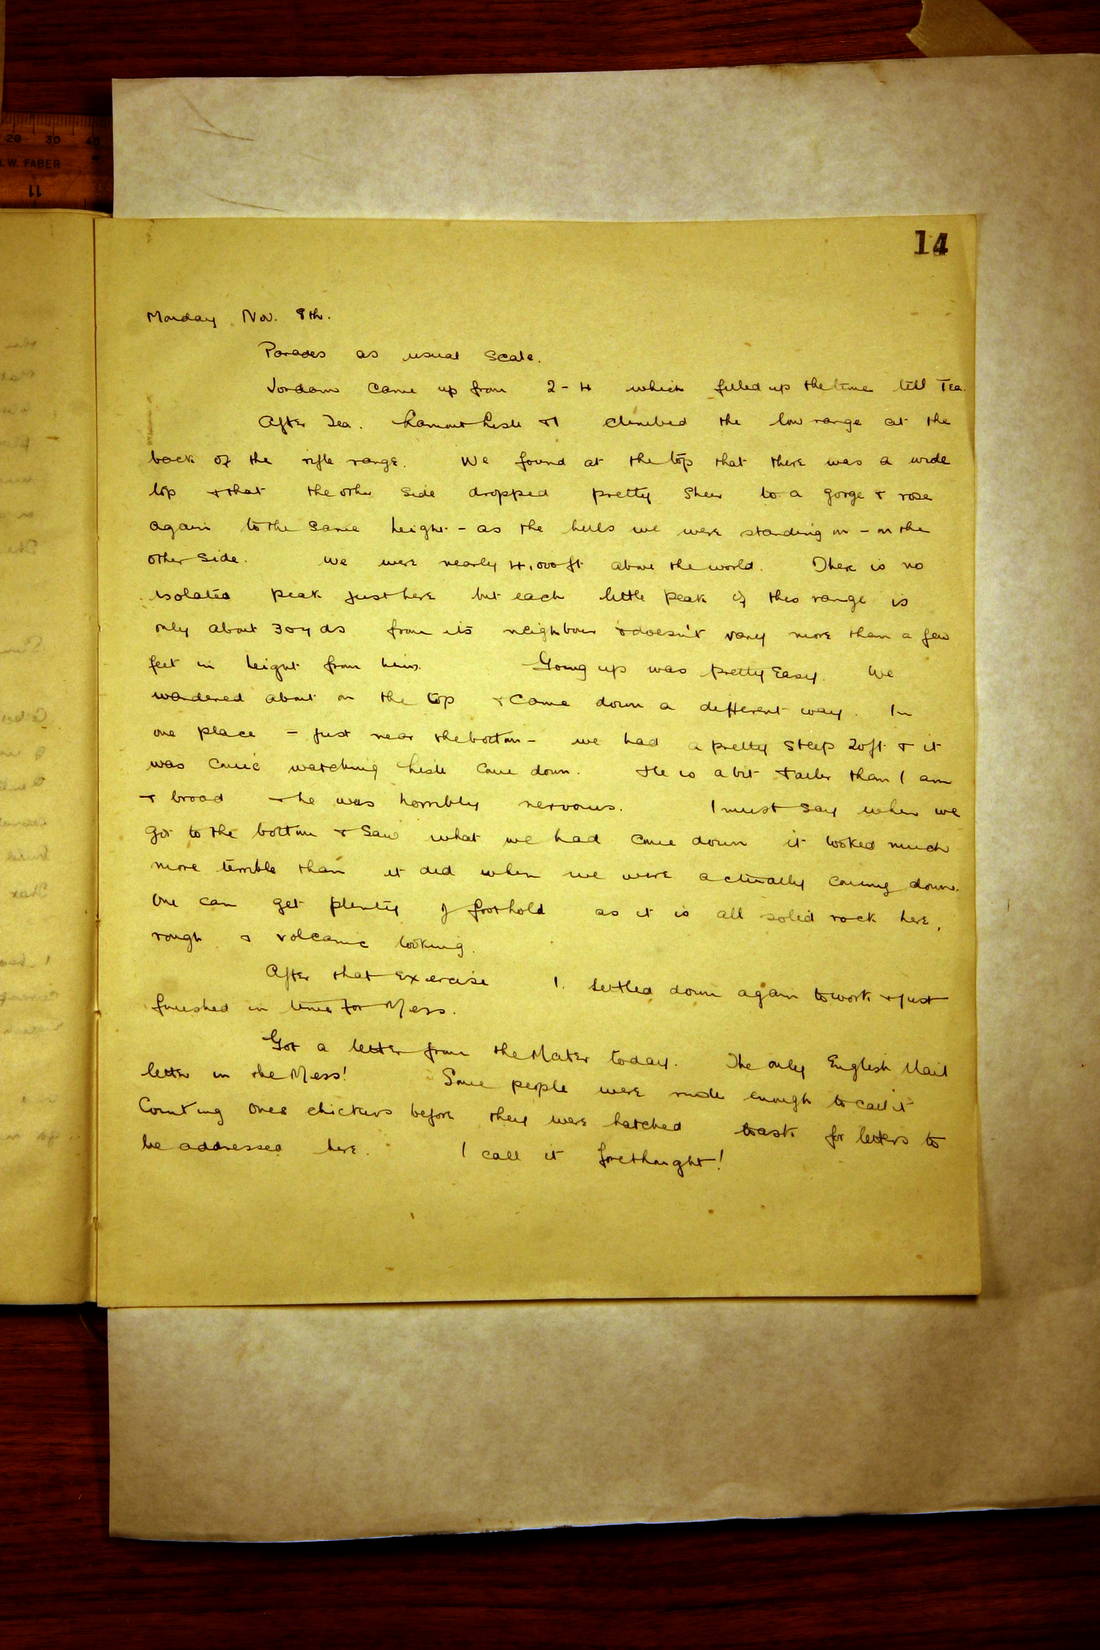 20 30 40
W. FABER
11
14
Monday Nov. 9th.
Parades as usual scale.
Jordan came up from 2-4 which filled up the time till Tea.
After Tea. Lamont Leslie & I climbed the low range at the
back of the rifle range. We found at the top that there was a wide
top & that the other side dropped pretty sheer to a gorge & rose
again to the same height - as the hills we were standing on - on the
other side. We were nearly 4,000 ft above the world. There is no
isolated peak just here but each little peak of this range is
only about 30 yds from its neighbour & doesn't vary more than a few
feet in height from him. Going up was pretty easy. We
wandered about on the top & came down a different way. In
one place - just near the bottom - we had a pretty steep 20ft & it
was comic watching Leslie come down. He is a bit taller than I am
& broad & he was horribly nervous. I must say when we
got to the bottom & saw what we had come down it looked much
more terrible than it did when we were actually coming down.
One can get plenty of foothold as it is all solid rock here,
rough & volcanic looking.
After that exercise I settled down again to work & just
finished in time for Mess.
Got a letter from the Mater today. The only English Mail
letter in the Mess! Some people were rude enough to call it
Counting ones chickens before they were hatched to ask for letters to
be addressed here. I call it forethought!